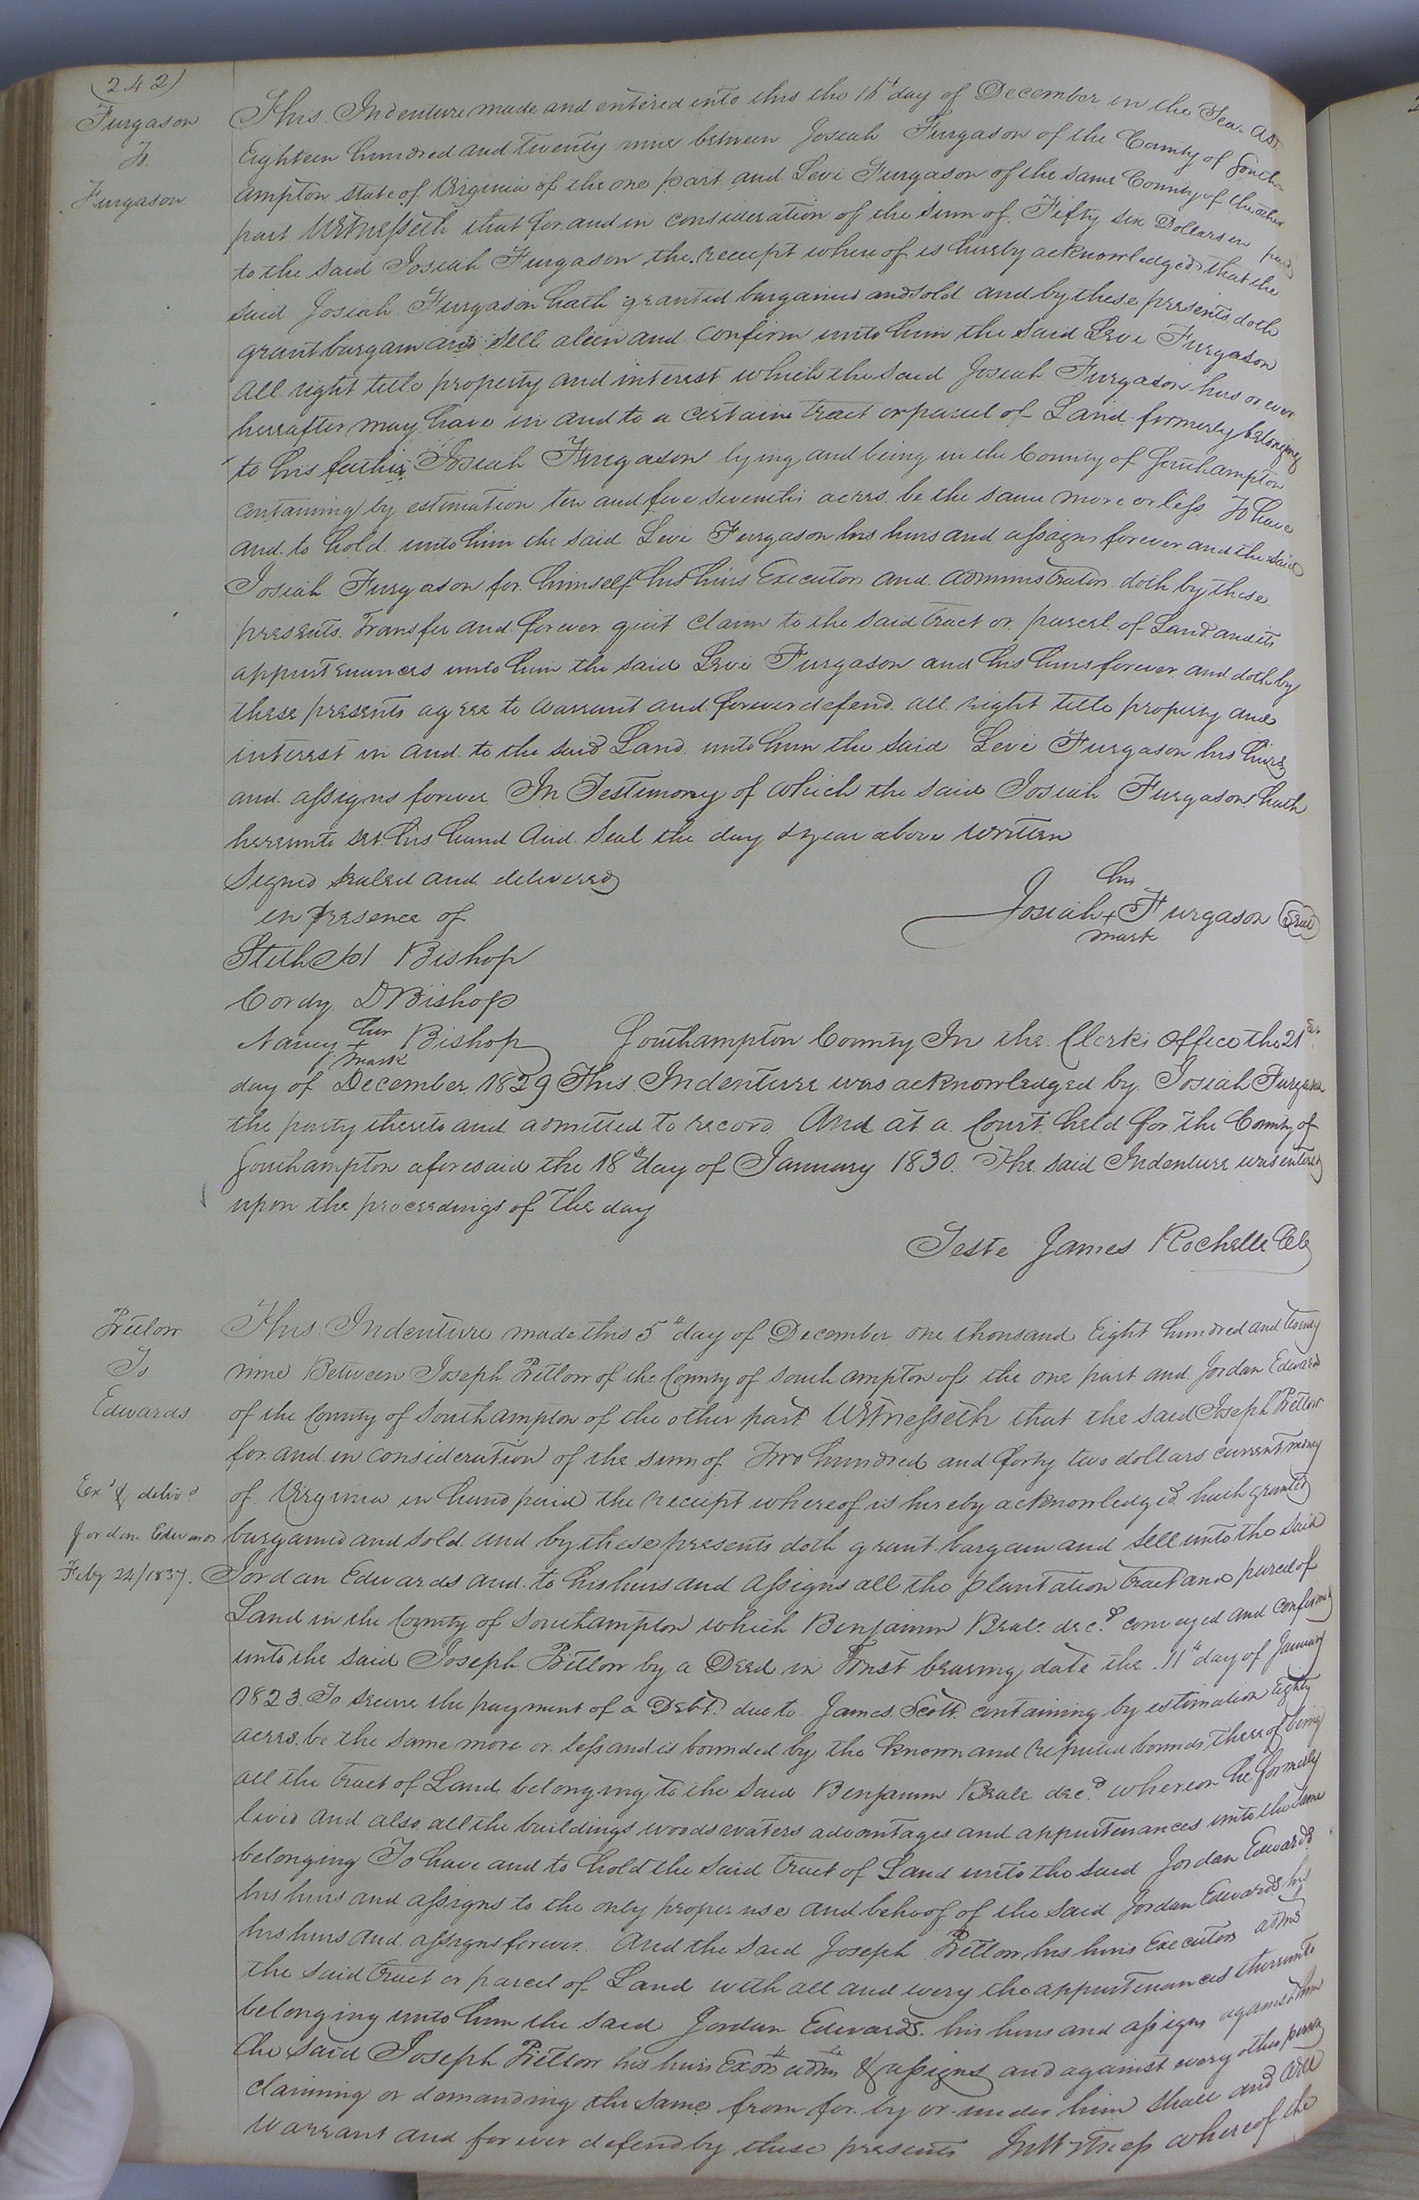 (242)
Furgason
To
Furgason
This Indenture made and entered into this the 15 day of December in the Year
Eighteen hundred and twenty nine between Josiah Furgason of the County of South
ampton state of Virginia of the one part and Levi Furgason of the same County of the other
part Witnesseth that for and in consideration of the sum of Fifty six Dollars in paid
to the said Josiah Furgason the receipt where of is hereby acknowledged that the
said Josiah Furgason hath granted bargained and sold and by these presents doth
grant bargain and sell alien and confirm unto him the said Levi Furgason
all right title property and interest which the said Josiah Furgason has or ever
hereafter may have in and to a certain tract or parcel of Land formerly belonging
to his father Josiah Furgason lying and being in the County of Southampton
containing by estimation ten and five sevenths acres be the same more or less To have
and to hold unto him the said Levi Furgason his heirs and assigns forever and the said
Josiah Furgason for himself his heirs Executors and administrators doth by these
presents Transfer and forever quit claim to the said tract or parcel of Land and its
appurtenances unto him the said Levi Furgason and his heirs forever and doth by
these presents agree to warrant and forever defend all right title property and
interest in and to the said Land unto him the said Levi Furgason his heirs
and assigns forever In Testimony of which the said Josiah Furgason hath
hereunto set his hand and Seal the day & year above written
Signed sealed and delivered
in presence of
his
Josiah + Furgason Seal
mark
Bishop
Cordy D Bishop
Nancy her + mark Bishop Southampton County In the Clerks Office the 21st
day of December 1829 This Indenture was acknowledged by Josiah Furgason
the party thereto and admitted to record And at a Court held for the County of
Southampton aforesaid the 18th day of January 1830. The said Indenture was entered
upon the proceedings of the day
Teste James Rochelle Clk
Pretlow
To
Edwards
Exd & delivd
Jordan Edwards
Feby 24/1837.
This Indenture made this 5th day of December one thousand Eight hundred and twenty
nine Between Joseph Pretlow of the County of Southampton of the one part and Jordan Edwards
of the County of Southampton of the other part Witnesseth that the said Joseph Pretlow
for and in consideration of the sum of Two hundred and forty two dollars current money
of Virginia in hand paid the receipt whereof is hereby acknowledged hath granted
bargained and sold and by these presents doth grant bargain and sell unto the said
Jordan Edwards and to his heirs and assigns all the plantation tract and parcel of
Land in the County of Southampton which Benjamin Beale decd conveyed and confirmed
unto the said Joseph Pretlow by a Deed in Trust bearing date the 11th day of January
1823. To secure the payment of a Debt due to James Scott containing by estimation eighty
acres be the same more or less and is bounded by the known and reputed bounds thereof being
all the tract of Land belonging to the said Benjamin Beale decd whereon he formerly
lived and also all the buildings woods waters advantages and appurtenances unto the same
belonging To have and to hold the said tract of Land unto the said Jordan Edwards
his heirs and assigns to the only proper use and behoof of the said Jordan Edwards his
his heirs and assigns forever. And the said Joseph Pretlow his heirs Executors adms
the said tract or parcel of Land with all and every the appurtenances thereunto
belonging unto him the said Jordan Edwards his heirs and assigns against him
the said Joseph Pretlow his heirs Exors adms & assigns and against every other person
claiming or demanding the same from for by or under him shall and will
warrant and forever defend by these presents In Witness whereof the